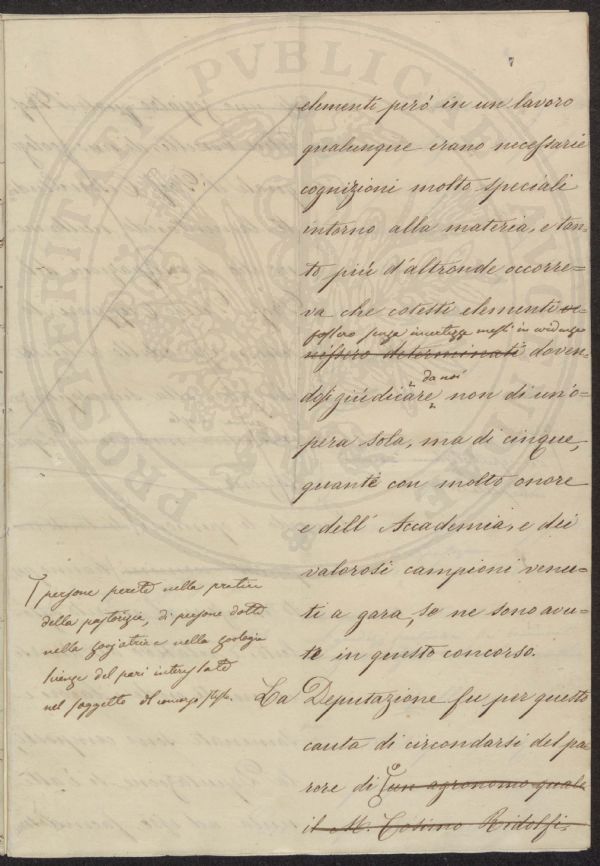 7
elementi però in un lavoro
qualunque erano necessarie
cognizioni molto speciali
intorno alla materia, e tan-
to più d'altronde occorre=
va che cotesti elementi ve-
fossero senza incertezza messi in evidenza
nissero determinati doven-
dosi giudicare non di un'o=
da noi
pera sola, ma di cinque,
quante con molto onore
e dell' Accademia, e dei
valorosi campioni venu-
ti a gara, se ne sono avu-
te in questo concorso.
La Deputazione fu per questo
cauta di circondarsi del pa
rere di un agronomo quale
il M. Cosimo Ridolfi,
persone perite nella pratica
della pastorizia, di persone dotte
nella zoojatria e nella zoologia
scienze del pari interessate
nel soggetto del concorso stesso.
PROSPERITATI PUBLICAE